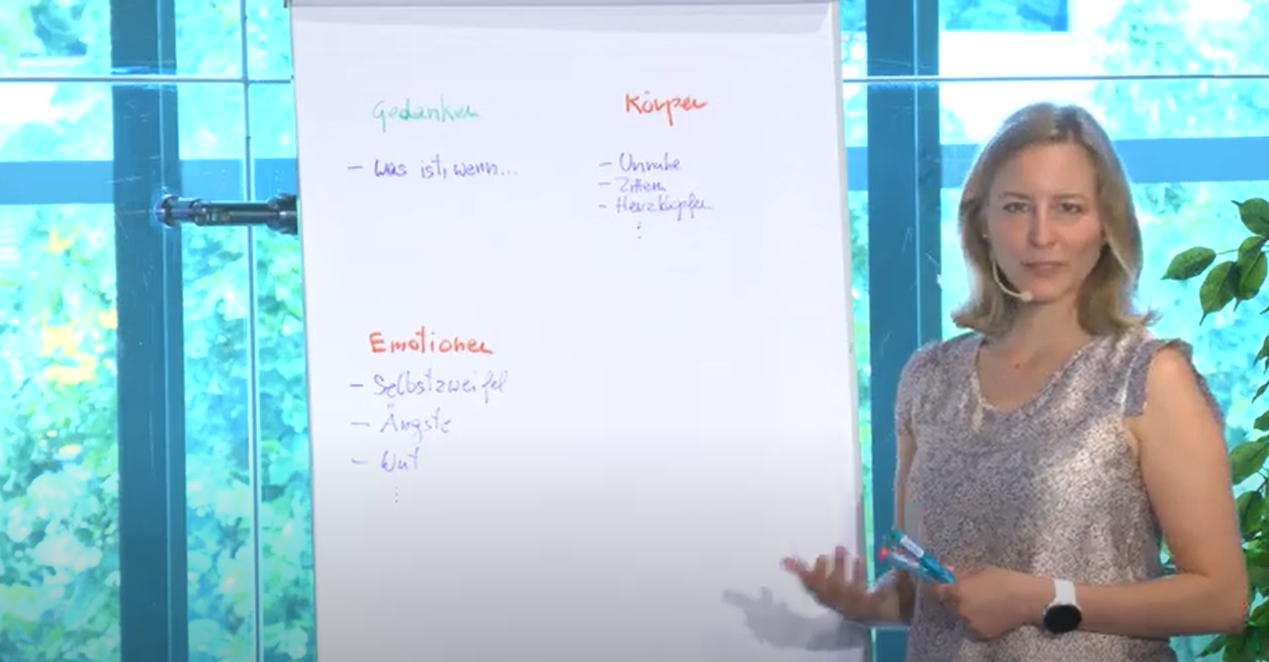 Gedanken
- Was ist, wenn...
Körper
- Unruhe
- Zittern
- Herzklopfen
⋮
Emotionen
- Selbstzweifel
- Ängste
- Wut
⋮